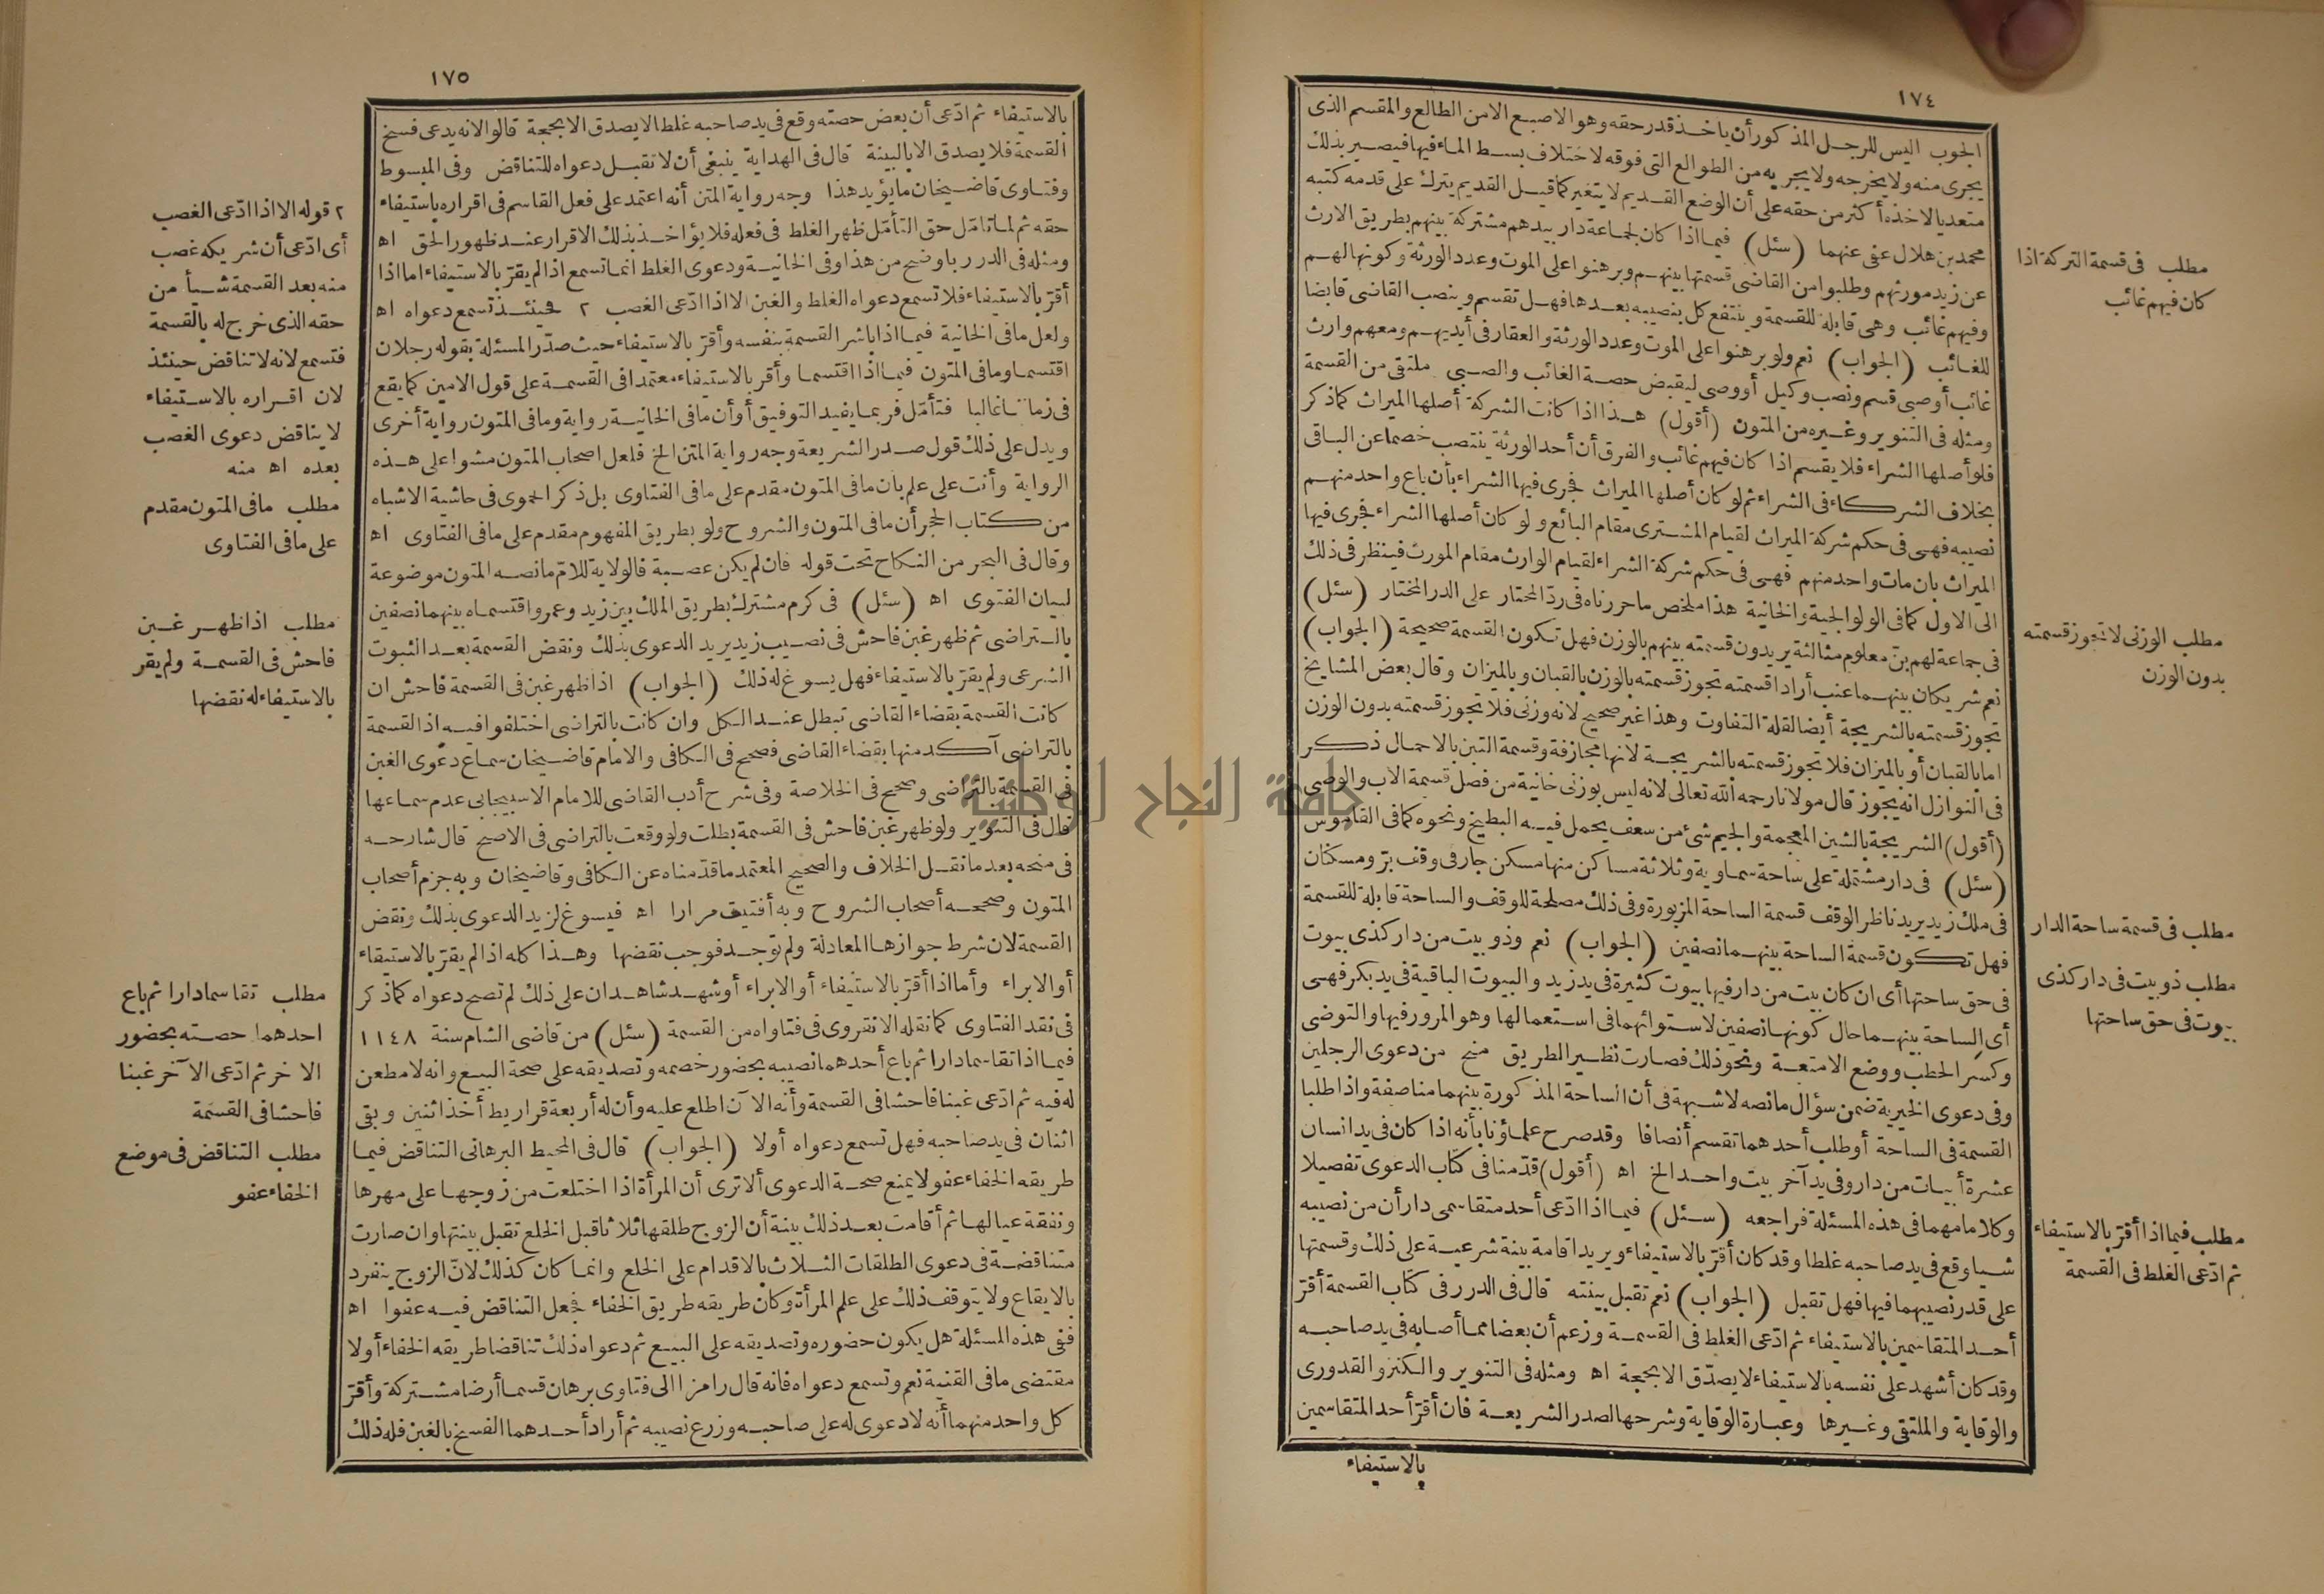 ١٧٤
الجوب اليس للرجل المذكور أن يأخذ قدر حقه وهو الاصبع الامن الطالع والمقسم الذى
يجرى منه ولا يخرجه ولا يجريه من الطوالع التى فوقه لاختلاف بسط الماء فيها فيصير بذلك
متعديا لاخذه أكثر من حقه على أن الوضع القديم لا يتغير كما قيل القديم يترك على قدمه كتبه
محمد بن هلال عفى عنهما (سئل) فيما اذا كان لجماعة دار بيدهم مشتركة بينهم بطريق الارث
عن زيد مورثهم وطلبوا من القاضى قسمتها بينهم وبرهنوا على الموت وعدد الورثة وكونها لهم
وفيهم غائب وهى قابلة للقسمة وينتفع كل بنصيبه بعدها فهل تقسم وينصب القاضى قابضا
للغائب (الجواب) نعم ولو برهنوا على الموت وعدد الورثة والعقار فى أيديهم ومعهم وارث
غائب أو صبى قسم ونصب وكيل أو وصى ليقبض حصة الغائب والصبى ملتقى من القسمة
ومثله فى التنوير وغيره من المتون (أقول) هذا اذا كانت الشركة أصلها الميراث كما ذكر
فلو أصلها الشراء فلا يقسم اذا كان فيهم غائب والفرق أن أحد الورثة ينتصب خصما عن الباقى
بخلاف الشركاء فى الشراء ثم لو كان أصلها الميراث فجرى فيها الشراء بأن باع واحد منهم
نصيبه فهى فى حكم شركة الميراث لقيام المشترى مقام البائع ولو كان أصلها الشراء فجرى فيها
الميراث بان مات واحد منهم فهى فى حكم شركة الشراء لقيام الوارث مقام المورث فينظر فى ذلك
الى الاول كما فى الولوالجية والخانية هذا ملخص ما حررناه فى ردّ المحتار على الدر المختار (سئل)
فى جماعة لهم بنّ معلوم مثالثة يريدون قسمته بينهم بالوزن فهل تكون القسمة صحيحة (الجواب)
نعم شريكان بينهما عنب أرادا قسمته تجوز قسمته بالوزن بالقبان وبالميزان وقال بعض المشايخ
تجوز قسمته بالشريجة أيضا لقلة التفاوت وهذا غير صحيح لانه وزنى فلا تجوز قسمته بدون الوزن
اما بالقبان أو بالميزان فلا تجوز قسمته بالشريجة لانها مجازفة وقسمة التبن بالاحمال ذكر
فى النوازل انه يجوز قال مولانا رحمه الله تعالى لانه ليس بوزنى خانية من فصل قسمة الاب والوصى
(أقول) الشريجة بالشين المعجمة والجيم شئ من سعف يحمل فيه البطيخ ونحوه كما فى القاموس
(سئل) فى دار مشتملة على ساحة سماوية وثلاثة مساكن منها مسكن جار فى وقف برّ ومسكنان
فى ملك زيد يريد ناظر الوقف قسمة الساحة المزبورة وفى ذلك مصلحة للوقف والساحة قابلة للقسمة
فهل تكون قسمة الساحة بينهما نصفين (الجواب) نعم وذو بيت من دار كذى بيوت
فى حق ساحتها أى ان كان بيت من دار فيها بيوت كثيرة فى يد زيد والبيوت الباقية فى يد بكر فهى
أى الساحة بينهما حال كونها نصفين لاستوائهما فى استعمالها وهو المرور فيها والتوضى
وكسر الحطب ووضع الامتعة ونحو ذلك فصارت نظير الطريق منح من دعوى الرجلين
وفى دعوى الخيرية ضمن سؤال ما نصه لاشبهة فى أن الساحة المذكورة بينهما مناصفة واذا طلبا
القسمة فى الساحة أو طلب أحدهما تقسم أنصافا وقد صرح علماؤنا بأنه اذا كان فى يد انسان
عشرة أبيات من دار وفى يد آخر بيت واحد الخ اه (أقول) قدّمنا فى كتاب الدعوى تفصيلا
وكلاما مهما فى هذه المسئلة فراجعه (سئل) فيما اذا ادّعى أحد متقاسمى دار أن من نصيبه
شيا وقع فى يد صاحبه غلطا وقد كان أقرّ بالاستيفاء ويريد اقامة بينة شرعية على ذلك وقسمتها
على قدر نصيبهما فيها فهل تقبل (الجواب) نعم تقبل بينته قال فى الدرر فى كتاب القسمة أقرّ
أحد المتقاسمين بالاستيفاء ثم ادّعى الغلط فى القسمة وزعم أن بعضا مما أصابه فى يد صاحبه
وقد كان أشهد على نفسه بالاستيفاء لا يصدّق الا بحجة اه ومثله فى التنوير والكنز والقدورى
والوقاية والملتقى وغيرها وعبارة الوقاية وشرحها لصدر الشريعة فان أقرّ أحد المتقاسمين
بالاستيفاء
مطلب فى قسمة التركة اذا
كان فيهم غائب
مطلب الوزنى لا تجوز قسمته
بدون الوزن
مطلب فى قسمة ساحة الدار
مطلب ذو بيت فى دار كذى
بيوت فى حق ساحتها
مطلب فيما اذا أقرّ بالاستيفاء
ثم ادّعى الغلط فى القسمة
١٧٥
بالاستيفاء ثم ادّعى أن بعض حصته وقع فى يد صاحبه غلطا لا يصدق الا بحجة قالوا لانه يدعى فسخ
القسمة فلا يصدق الا بالبينة قال فى الهداية ينبغى أن لا تقبل دعواه للتناقض وفى المبسوط
وفتاوى قاضيخان ما يؤيد هذا وجه رواية المتن أنه اعتمد على فعل القاسم فى اقراره باستيفاء
حقه ثم لما تأمّل حق التأمّل ظهر الغلط فى فعله فلا يؤاخذ بذلك الاقرار عند ظهور الحق اه
ومثله فى الدرر باوضح من هذا وفى الخانية ودعوى الغلط انما تسمع اذا لم يقرّ بالاستيفاء اما اذا
أقرّ بالاستيفاء فلا تسمع دعواه الغلط والغبن الا اذا ادّعى الغصب ٢ فحينئذ تسمع دعواه اه
ولعل ما فى الخانية فيما اذا باشر القسمة بنفسه وأقرّ بالاستيفاء حيث صدّر المسئلة بقوله رجلان
اقتسما وما فى المتون فيما اذا اقتسما وأقر بالاستيفاء معتمدا فى القسمة على قول الامين كما يقع
فى زماننا غالبا فتأمّل فربما يفيد التوفيق أو أن ما فى الخانية رواية وما فى المتون رواية أخرى
ويدل على ذلك قول صدر الشريعة وجه رواية المتن الخ فلعل اصحاب المتون مشوا على هذه
الرواية وأنت على علم بان ما فى المتون مقدم على ما فى الفتاوى بل ذكر الحموى فى حاشية الاشباه
من كتاب الحجر أن ما فى المتون والشروح ولو بطريق المفهوم مقدم على ما فى الفتاوى اه
وقال فى البحر من النكاح تحت قوله فان لم يكن عصبة فالولاية للامّ ما نصه المتون موضوعة
لبيان الفتوى اه (سئل) فى كرم مشترك بطريق الملك بين زيد وعمرو اقتسماه بينهما نصفين
بالتراضى ثم ظهر غبن فاحش فى نصيب زيد يريد الدعوى بذلك ونقض القسمة بعد الثبوت
الشرعى ولم يقرّ بالاستيفاء فهل يسوغ له ذلك (الجواب) اذا ظهر غبن فى القسمة فاحش ان
كانت القسمة بقضاء القاضى تبطل عند الكل وان كانت بالتراضى اختلفوا فيه اذ القسمة
بالتراضى آكد منها بقضاء القاضى فصحح فى الكافى والامام قاضيخان سماع دعوى الغبن
فى القسمة بالتراضى وصحح فى الخلاصة وفى شرح أدب القاضى للامام الاسبيجابى عدم سماعها
قال فى التنوير ولو ظهر غبن فاحش فى القسمة بطلت ولو وقعت بالتراضى فى الاصح قال شارحه
فى منحه بعد ما نقل الخلاف والصحيح المعتمد ما قدّمناه عن الكافى وقاضيخان وبه جزم أصحاب
المتون وصححه أصحاب الشروح وبه أفتيت مرارا اه فيسوغ لزيد الدعوى بذلك ونقض
القسمة لان شرط جوازها المعادلة ولم توجد فوجب نقضها وهذا كله اذا لم يقرّ بالاستيفاء
أو الابراء وأما اذا أقرّ بالاستيفاء أو الابراء أو شهد شاهدان على ذلك لم تصح دعواه كما ذكر
فى نقد الفتاوى كما نقله الانقروى فى فتاواه من القسمة (سئل) من قاضى الشام سنة ١١٤٨
فيما اذا تقاسما دارا ثم باع أحدهما نصيبه بحضور خصمه وتصديقه على صحة البيع وانه لا مطعن
له فيه ثم ادّعى غبنا فاحشا فى القسمة وأنه الا آن اطلع عليه وأن له أربعة قراريط أخذ اثنين وبقى
اثنان فى يد صاحبه فهل تسمع دعواه أولا (الجواب) قال فى المحيط البرهانى التناقض فيما
طريقه الخفاء عفو لا يمنع صحة الدعوى ألا ترى أن المرأة اذا اختلعت من زوجها على مهرها
ونفقة عيالها ثم أقامت بعد ذلك بينة أن الزوج طلقها ثلاثا قبل الخلع تقبل بينتها وان صارت
متناقضة فى دعوى الطلقات الثلاث بالاقدام على الخلع وانما كان كذلك لانّ الزوج ينفرد
بالايقاع ولا يتوقف ذلك على علم المرأة وكان طريقه طريق الخفاء فجعل التناقض فيه عفوا اه
ففى هذه المسئلة هل يكون حضوره وتصديقه على البيع ثم دعواه ذلك تناقضا طريقه الخفاء أولا
مقتضى ما فى القنية نعم وتسمع دعواه فانه قال رامزا الى فتاوى برهان قسما أرضا مشتركة وأقرّ
كل واحد منهما أنه لا دعوى له على صاحبه وزرع نصيبه ثم أراد أحدهما الفسخ بالغبن فله ذلك
٢ قوله الا اذا ادّعى الغصب
أى ادّعى أن شريكه غصب
منه بعد القسمة شيأ من
حقه الذى خرج له بالقسمة
فتسمع لانه لا تناقض حينئذ
لان اقراره بالاستيفاء
لا يناقض دعوى الغصب
بعده اه منه
مطلب ما فى المتون مقدم
على ما فى الفتاوى
مطلب اذا ظهر غبن
فاحش فى القسمة ولم يقر
بالاستيفاء له نقضها
مطلب تقاسما دارا ثم باع
احدهما حصته بحضور
الاخر ثم ادّعى الا آخر غبنا
فاحشا فى القسمة
مطلب التناقض فى موضع
الخفاء عفو
جامعة النجاح الوطنية